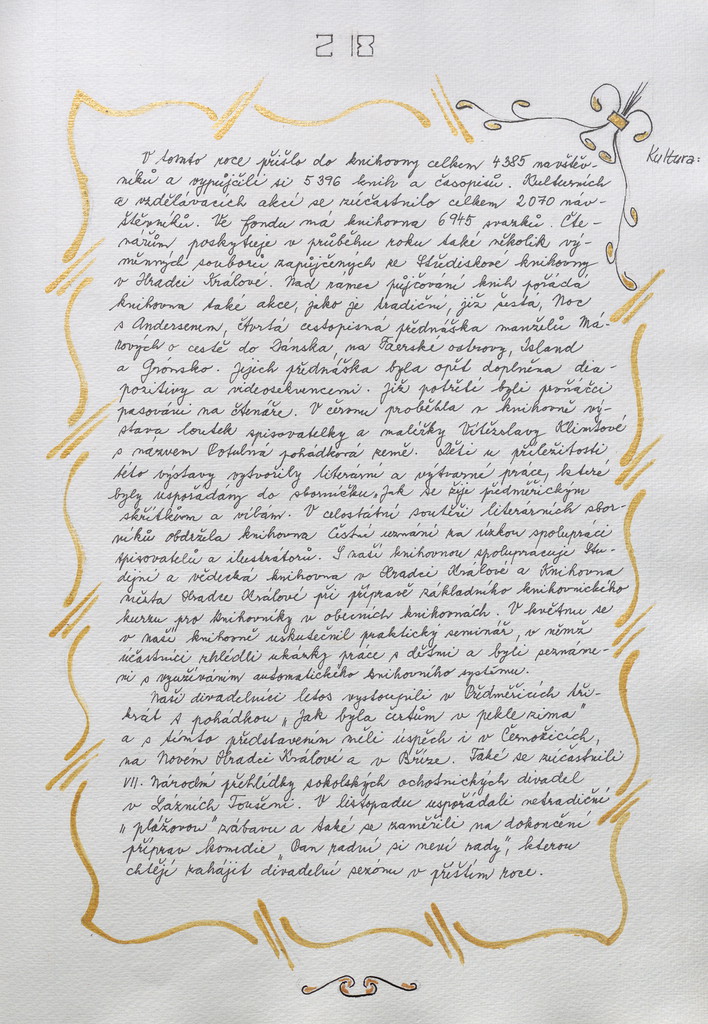 218
Kultura:
V tomto roce přišlo do knihovny celkem 4385 návštěv-
níků a vypůjčili si 5396 knih a časopisů. Kulturních
a vzdělávacích akcí se zúčastnilo celkem 2070 náv-
štěvníků. Ve fondu má knihovna 6945 svazků. Čte-
nářům poskytuje v průběhu roku také několik vý-
měnných souborů zapůjčených ze Střediskové knihovny
v Hradci Králové. Nad rámec půjčování knih pořádá
knihovna také akce, jako je tradiční, již šestá, Noc
s Andersenem, čtvrtá cestopisná přednáška manželů Má-
rových o cestě do Dánska, na Faerské ostrovy, Island
a Grónsko. Jejich přednáška byla opět doplněna dia-
pozitivy a videosekvencemi. Již potřetí byli prvňáčci
pasováni na čtenáře. V červnu proběhla v knihovně vý-
stava loutek spisovatelky a malířky Vítězslavy Klimtové
s názvem Potulná pohádková země. Děti u příležitosti
této výstavy vytvořily literární a výtvarné práce, které
byly uspořádány do sborníčku „Jak se žije předměřickým
skřítkům a vílám. V celostátní soutěži literárních sbor-
níků obdržela knihovna čestné uznání za úzkou spolupráci
spisovatelů a ilustrátorů. S naší knihovnou spolupracuje Stu-
dijní a vědecká knihovna v Hradci Králové a Knihovna
města Hradce Králové při přípravě základního knihovnického
kurzu pro knihovníky v obecních knihovnách. V květnu se
v naší knihovně uskutečnil praktický seminář, v němž
účastníci zhlédli ukázky práce s dětmi a byli seznáme-
ni s využíváním automatického knihovního systému.
Naši divadelníci letos vystoupili v Předměřicích tři-
krát s pohádkou „Jak byla čertům v pekle zima"
a s tímto představením měli úspěch i v Černožicích,
na Novém Hradci Králové a v Bříze. Také se zúčastnili
VII. Národní přehlídky sokolských ochotnických divadel
v Lázních Toušeni. V listopadu uspořádali netradiční
„plážovou" zábavu a také se zaměřili na dokončení
příprav komedie „Pan radní si neví rady", kterou
chtějí zahájit divadelní sezónu v příštím roce.